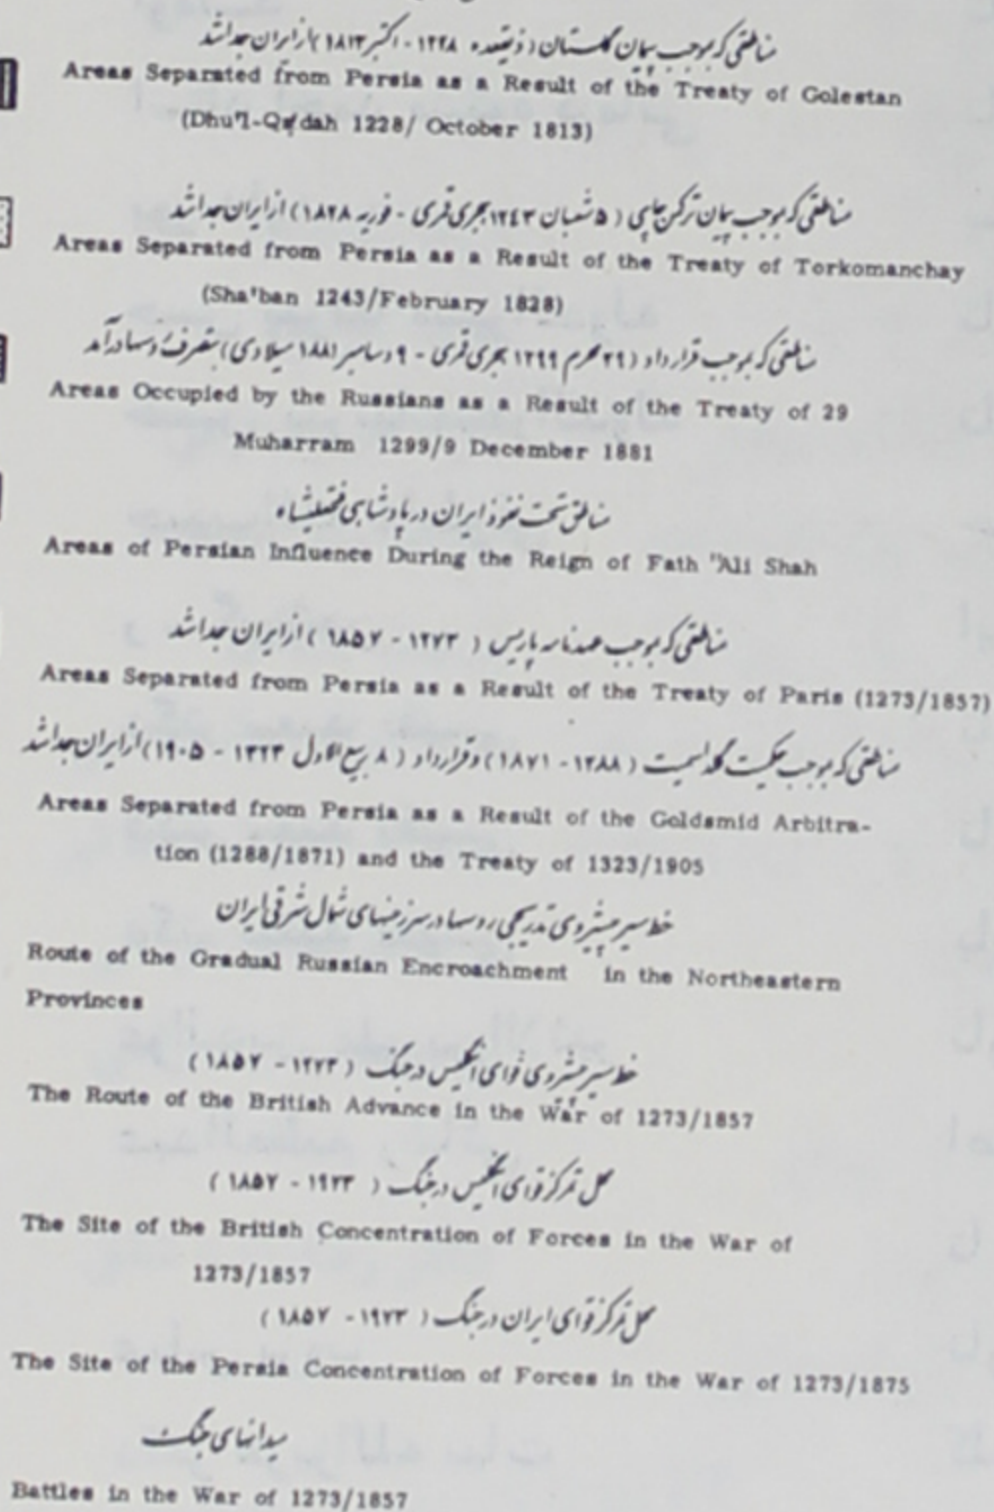 مناطقی که بموجب پیمان گلستان ( ذیقعده ۱۲۲۸ - اکتبر ۱۸۱۳ ) از ایران جدا شد
Areas Separated from Persia as a Result of the Treaty of Golestan
(Dhu'l-Qa'dah 1228/ October 1813)
مناطقی که بموجب پیمان ترکمن چای ( ۵ شعبان ۱۲۴۳ هجری قمری - فوریه ۱۸۲۸ ) از ایران جدا شد
Areas Separated from Persia as a Result of the Treaty of Torkomanchay
(Sha'ban 1243/February 1828)
مناطقی که بموجب قرارداد ( ۲۹ محرم ۱۲۹۹ هجری قمری - ۹ دسامبر ۱۸۸۱ میلادی ) بتصرف روسها درآمد
Areas Occupied by the Russians as a Result of the Treaty of 29
Muharram 1299/9 December 1881
مناطق تحت نفوذ ایران در پادشاهی فتحعلیشاه
Areas of Persian Influence During the Reign of Fath "Ali Shah
مناطقی که بموجب عهدنامه پاریس ( ۱۲۷۳ - ۱۸۵۷ ) از ایران جدا شد
Areas Separated from Persia as a Result of the Treaty of Paris (1273/1857)
مناطقی که بموجب حکمیت گلدسمیت ( ۱۲۸۸ - ۱۸۷۱ ) و قرارداد ( ۸ ربیع الاول ۱۳۲۳ - ۱۹۰۵ ) از ایران جدا شد
Areas Separated from Persia as a Result of the Goldsmid Arbitra-
tion (1288/1871) and the Treaty of 1323/1905
خط سیر پیشروی تدریجی روسها در سرزمینهای شمال شرقی ایران
Route of the Gradual Russian Encroachment in the Northeastern
Provinces
خط سیر پیشروی قوای انگلیس در جنگ ( ۱۲۷۳ - ۱۸۵۷ )
The Route of the British Advance in the War of 1273/1857
محل تمرکز قوای انگلیس در جنگ ( ۱۹۲۳ - ۱۸۵۷ )
The Site of the British Concentration of Forces in the War of
1273/1857
محل تمرکز قوای ایران در جنگ ( ۱۹۷۳ - ۱۸۵۷ )
The Site of the Persia Concentration of Forces in the War of 1273/1875
میدانهای جنگ
Battles in the War of 1273/1857